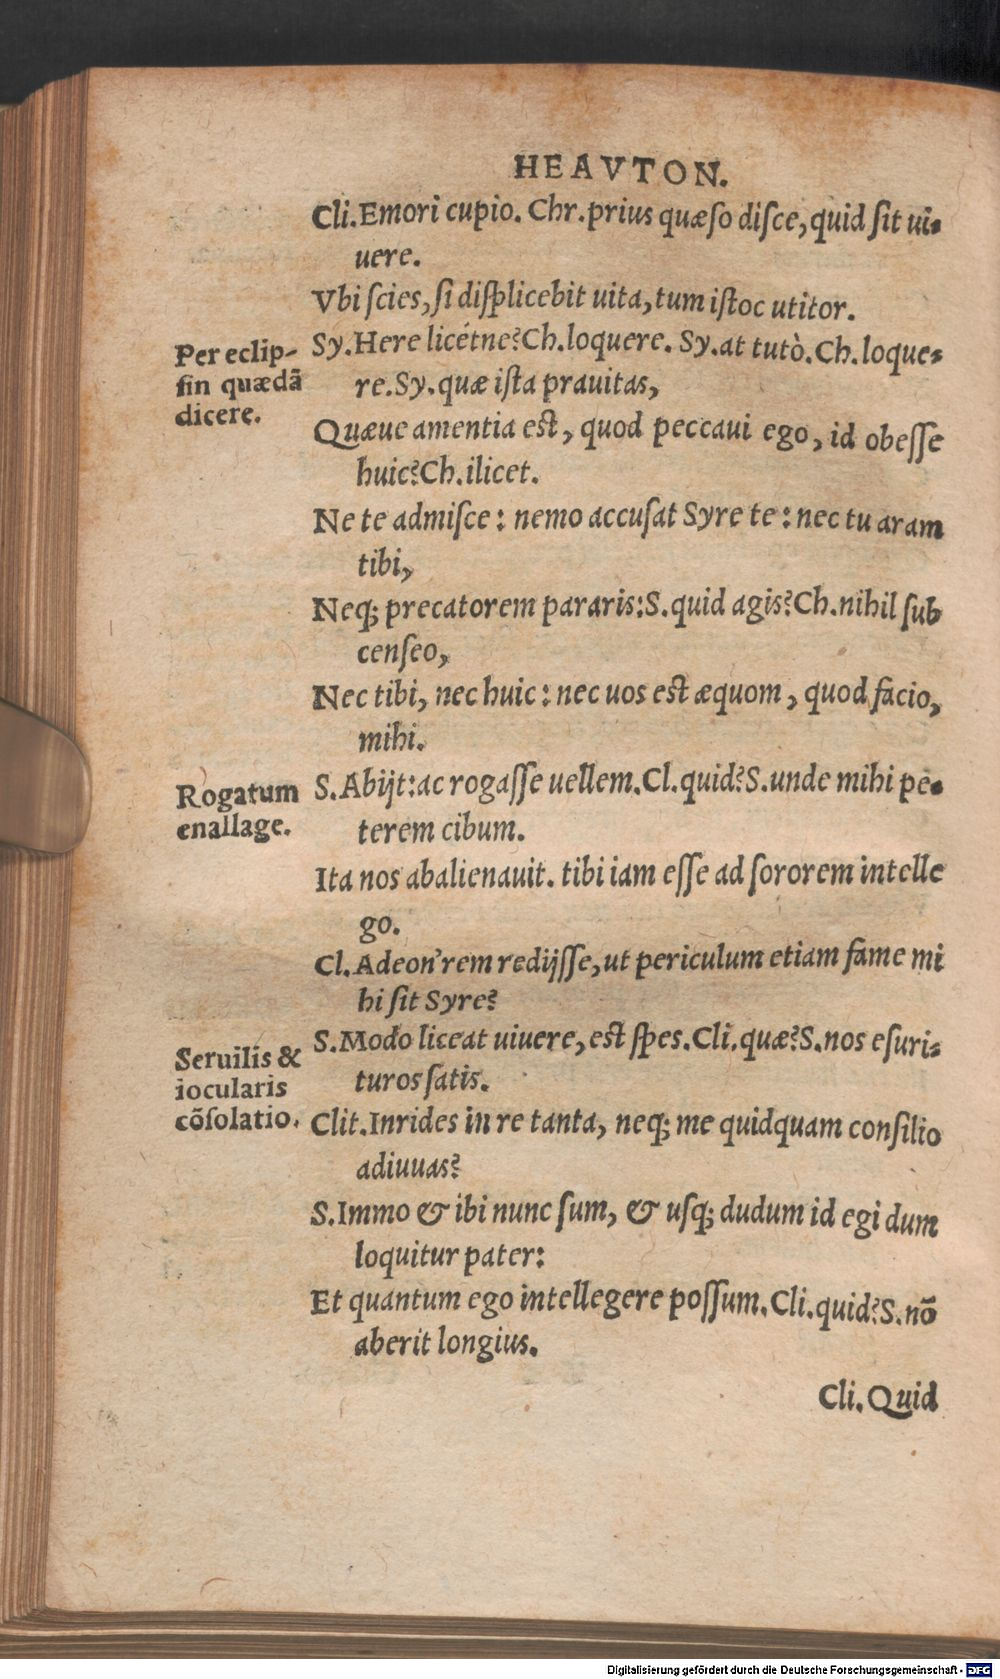 HEAVTON.
Cli.Emori cupio. Chr.prius quæſo diſce, quid ſit ui-
uere.
Vbi ſcies, ſi diſplicebit uita, tum iſtoc utitor.
Per eclip-
ſin quædã
dicere.
Sy.Here licétne? Ch.loquere. Sy.at tutò. Ch.loque-
re. Sy.quæ iſta prauitas,
Quæue amentia eſt, quod peccaui ego, id obeſſe
huic? Ch.ilicet.
Ne te admiſce: nemo accuſat Syre te: nec tu aram
tibi,
Neq; precatorem pararis: S.quid agis? Ch.nihil ſub
cenſeo,
Nec tibi, nec huic: nec uos eſt æquom, quod facio,
mihi.
Rogatum
enallage.
S.Abijt: ac rogaſſe uellem. Cl.quid? S.unde mihi pe-
terem cibum.
Ita nos abalienauit. tibi iam eſſe ad ſororem intelle
go.
Cl.Adeon'rem redijſſe, ut periculum etiam fame mi
hi ſit Syre?
Seruilis &
iocularis
cõſolatio.
S.Modo liceat uiuere, eſt ſpes. Cli.quæ? S.nos eſuri-
turos ſatis.
Clit.Inrides in re tanta, neq; me quidquam conſilio
adiuuas?
S.Immo & ibi nunc ſum, & uſq; dudum id egi dum
loquitur pater:
Et quantum ego intellegere poſſum. Cli.quid? S.nõ
aberit longius.
Cli.Quid
Digitalisierung gefördert durch die Deutsche Forschungsgemeinschaft - DFG